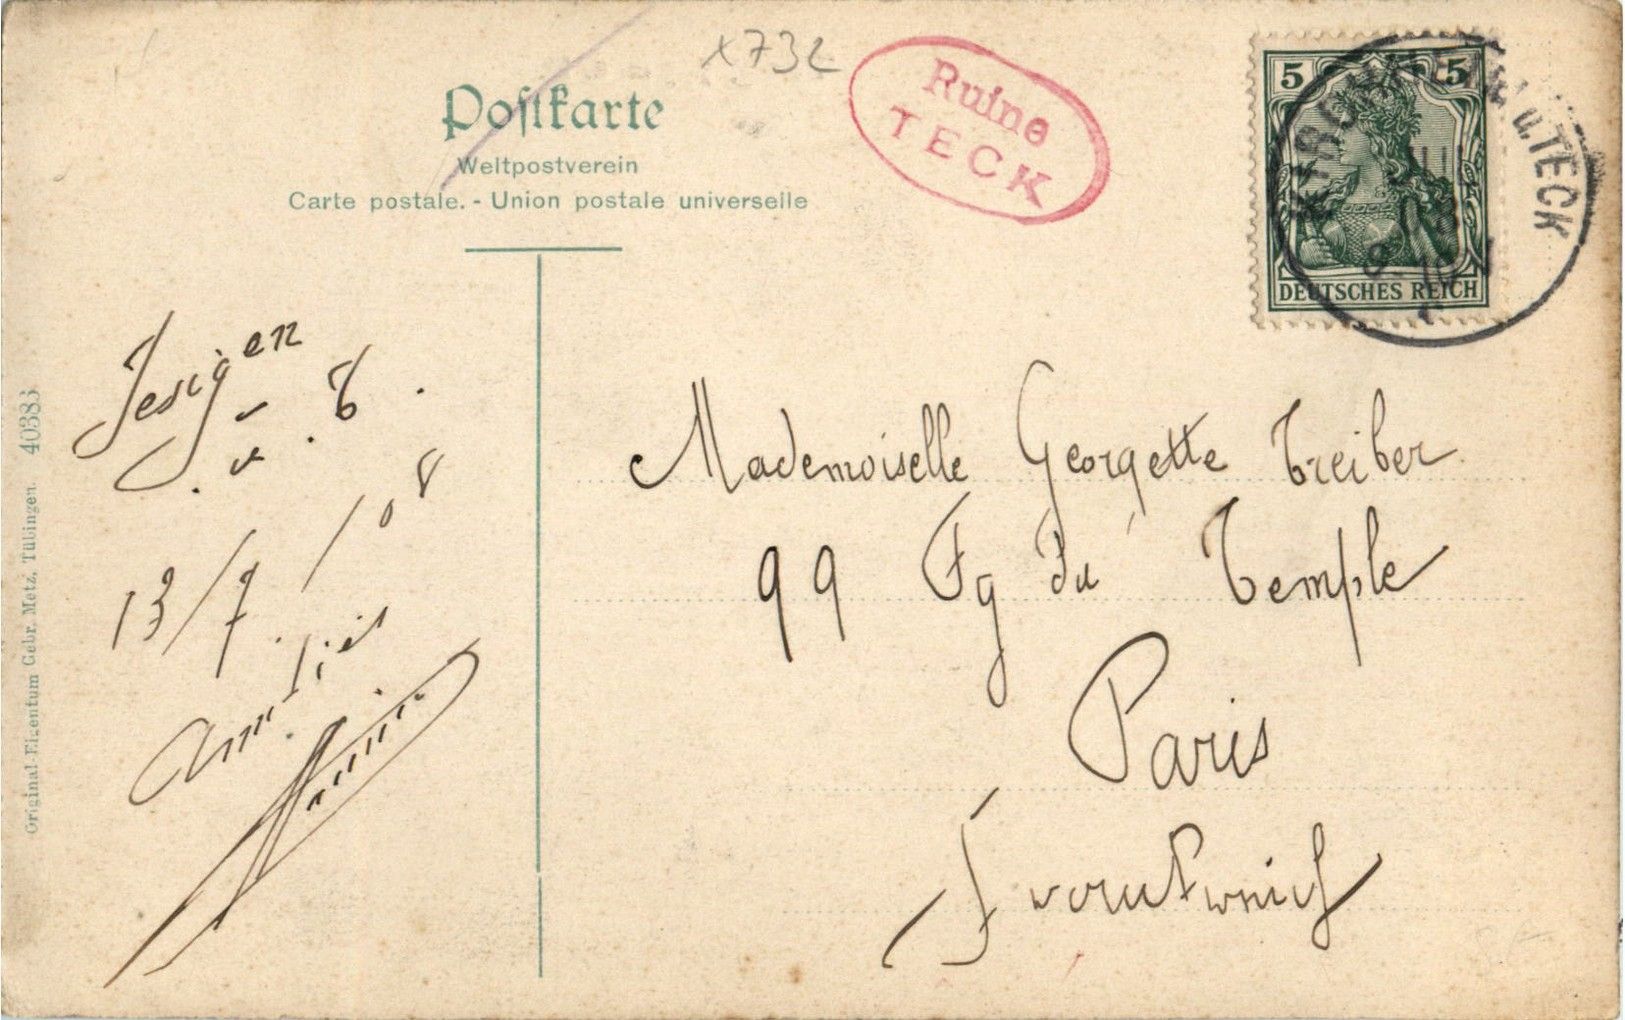 x732
Postkarte
Weltpostverein
Carte postale. - Union postale universelle
Ruine
TECK
5 5
DEUTSCHES REICH
u. TECK
Jesigen
u. T.
13/7/08
Amitiés
Mademoiselle Georgette Treiber
99 Fg du Temple
Paris
Frankreich
Original-Eigentum Gebr. Metz, Tübingen. 40383